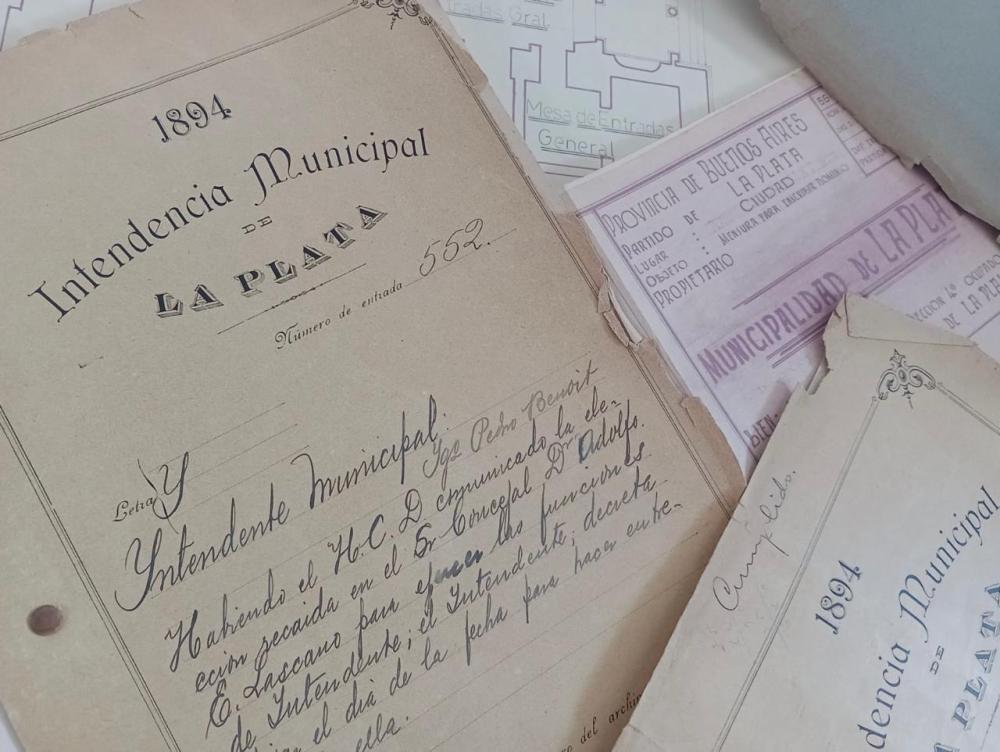 1894
Intendencia Municipal
DE
LA PLATA
Número de entrada 552.
Letra Y
Yntendente Municipal.
Ygo Pedro Benoit
Habiendo el H.C.D comunicado la ele-
ccion recaida en el Sr Concejal Dr Adolfo
E. Lascano para ejercer las funciones
de Intendente; el Intendente, decreta
el dia de la fecha para hacer entre-
ella.
del archi
tradas Gral
Mesa de Entradas
General
PROVINCIA DE BUENOS AIRES
PARTIDO DE LA PLATA
LUGAR : CIUDAD
OBJETO : MENSURA PARA INSCRIBIR DOMINIO
PROPIETARIO
MUNICIPALIDAD DE LA PLA
BIEN
OCUPADO
DE LA PLA
Cumplido.
1894
dencia Municipal
DE
PLATA